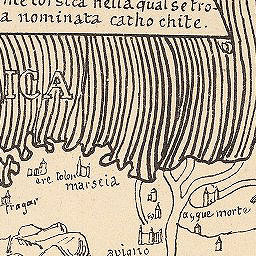 corsica nella qual se tro
a nominata catho chite.
ICA
marseia
fragar
aygue morte
avigno